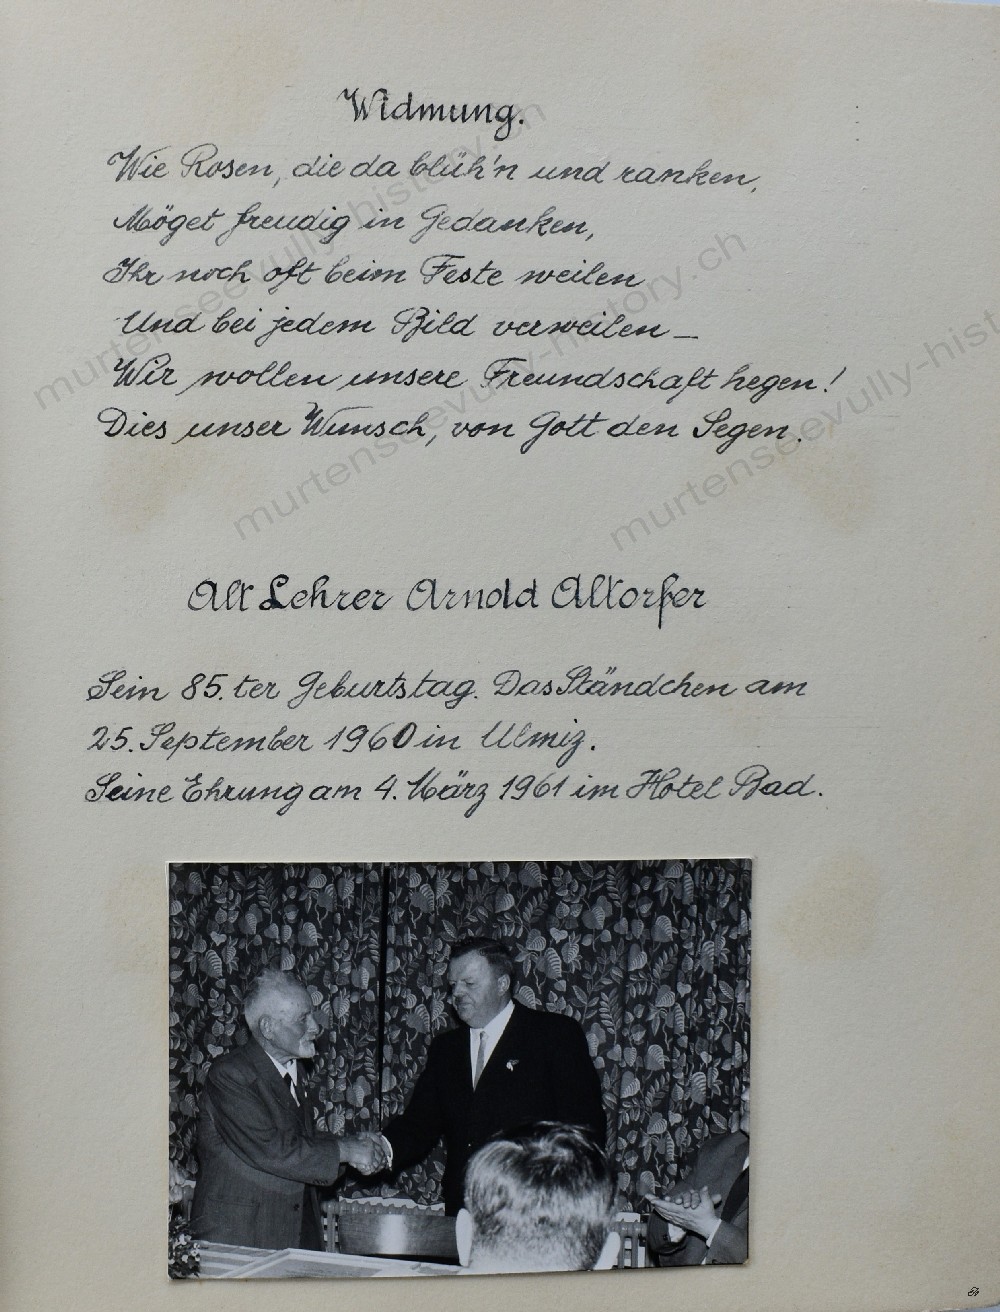 Widmung.
Wie Rosen, die da blüh'n und ranken,
Möget freudig in Gedanken,
Ihr noch oft beim Feste weilen
Und bei jedem Bild verweilen –
Wir wollen unsere Freundschaft hegen!
Dies unser Wunsch, von Gott den Segen.
Alt Lehrer Arnold Altorfer
Sein 85.ter Geburtstag. Das Ständchen am
25. September 1960 in Ulmiz.
Seine Ehrung am 4. März 1961 im Hotel Bad.
murtenseevully-history.ch
murtenseevully-history.ch
murtenseevully-hist